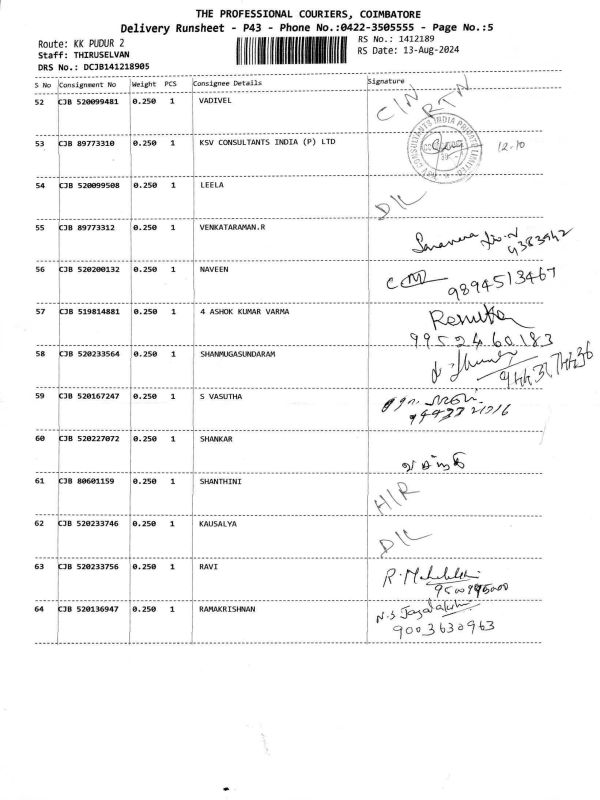 THE PROFESSIONAL COURIERS, COIMBATORE
Delivery Runsheet - P43 - Phone No.:0422-3505555 - Page No.:5
Route: KK PUDUR 2
RS No.: 1412189
Staff: THIRUSELVAN
RS Date: 13-Aug-2024
DRS No.: DCJB141218905
S No Consignment No Weight PCS Consignee Details Signature
52 CJB 520099481 0.250 1 VADIVEL C/N RTN
53 CJB 89773310 0.250 1 KSV CONSULTANTS INDIA (P) LTD 12-10
KSV CONSULTANTS INDIA PRIVATE LIMITED
54 CJB 520099508 0.250 1 LEELA D/L
55 CJB 89773312 0.250 1 VENKATARAMAN.R
56 CJB 520200132 0.250 1 NAVEEN
9894513467
57 CJB 519814881 0.250 1 4 ASHOK KUMAR VARMA Renuka
9952460183
58 CJB 520233564 0.250 1 SHANMUGASUNDARAM
59 CJB 520167247 0.250 1 S VASUTHA
60 CJB 520227072 0.250 1 SHANKAR
61 CJB 80601159 0.250 1 SHANTHINI H/R
62 CJB 520233746 0.250 1 KAUSALYA D/L
63 CJB 520233756 0.250 1 RAVI
64 CJB 520136947 0.250 1 RAMAKRISHNAN
9003630963